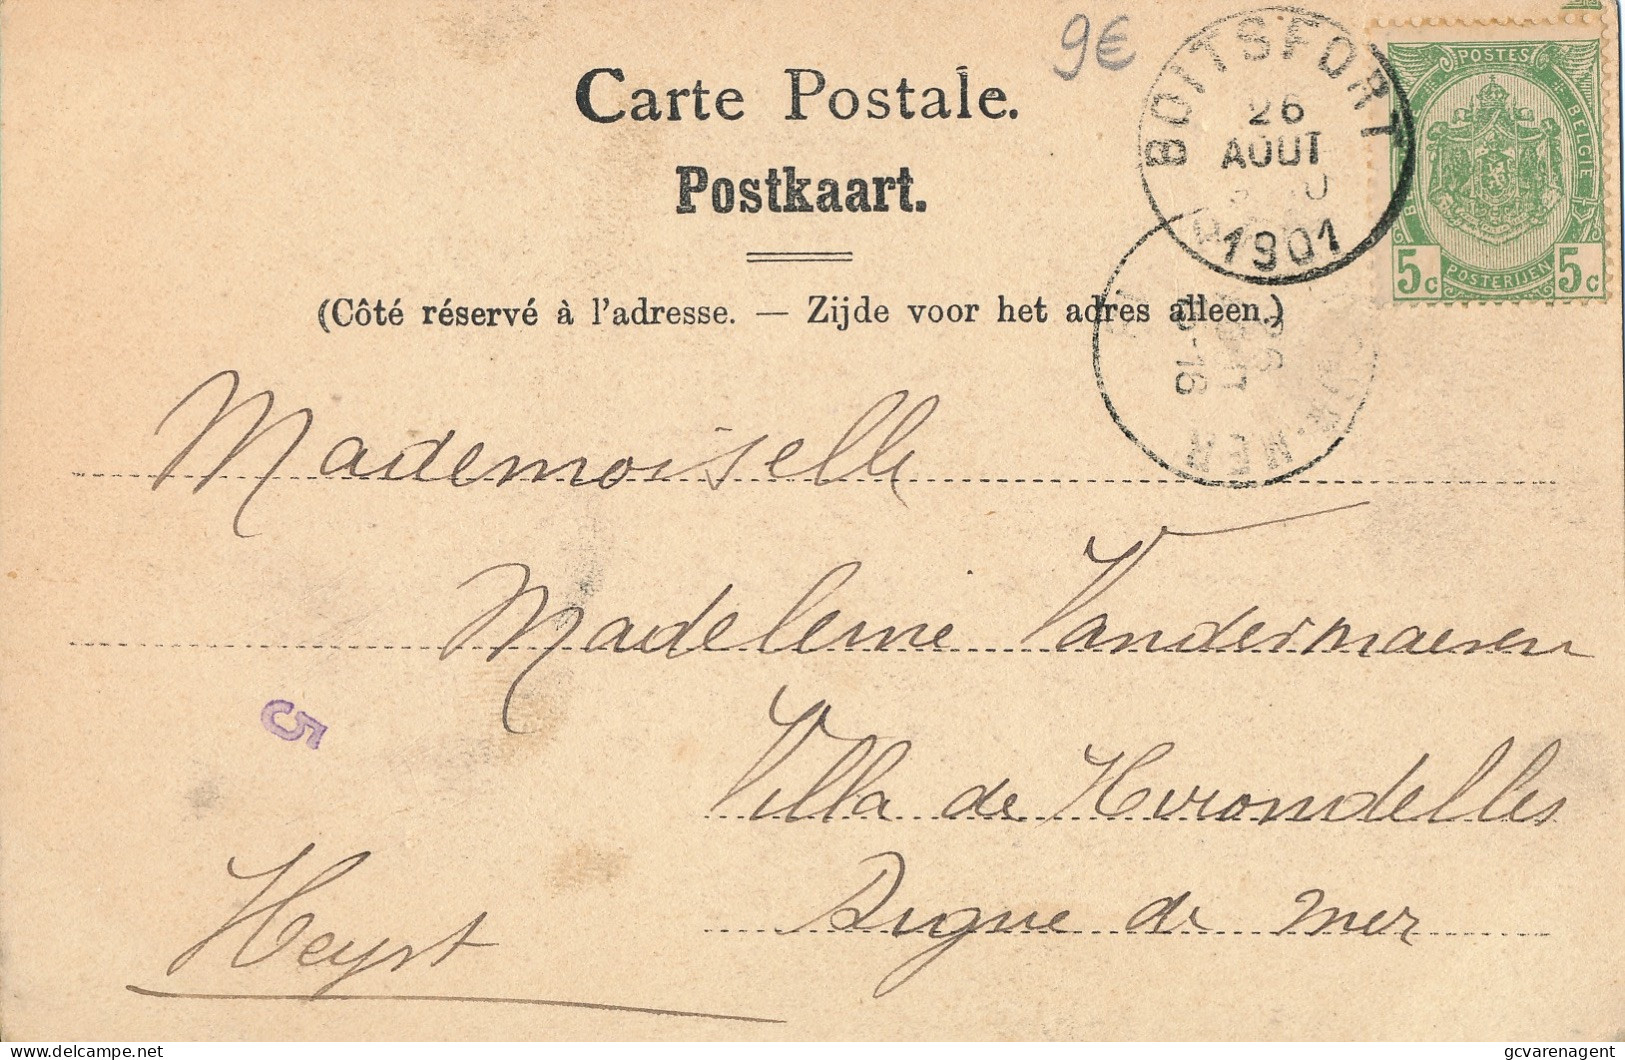 9€
BOITSFORT
26
AOUT
1901
POSTES
BELGIE
5c POSTERIJEN 5c
Carte Postale.
Postkaart.
(Côté réservé à l'adresse. — Zijde voor het adres alleen.)
26
6-16
Mademoiselle
Madeleine Vandermaesen
5
Villa de Hirondelles
Digue de mer
Heyst
delcampe.net
gcvarenagent